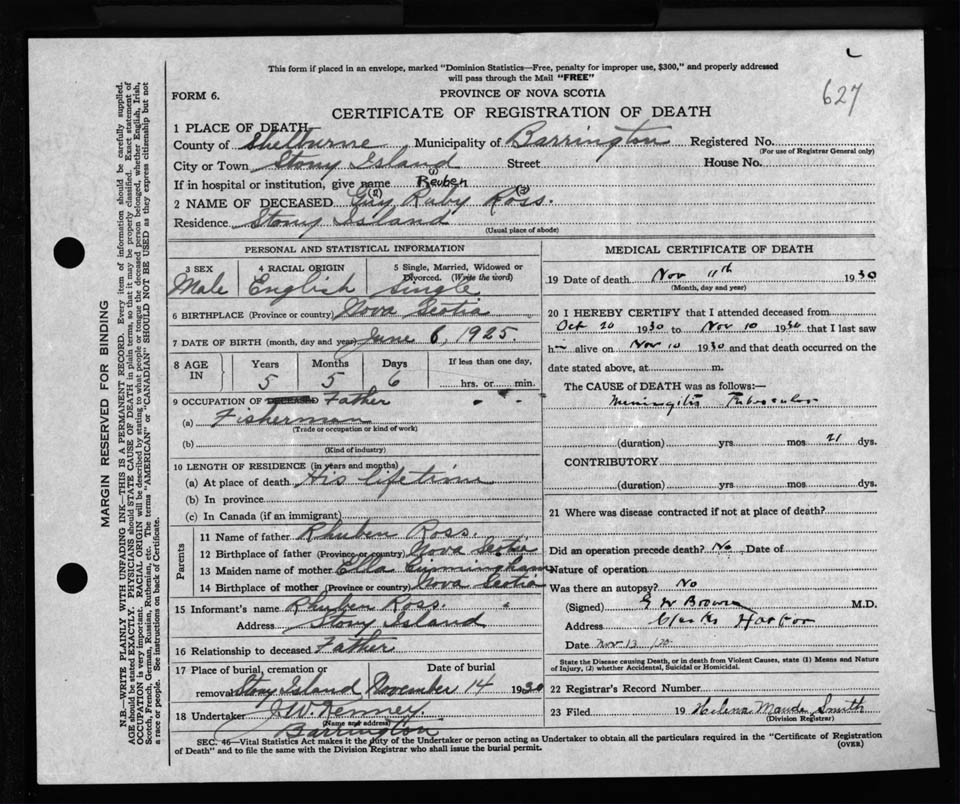 L
627
This form if placed in an envelope, marked "Dominion Statistics—Free, penalty for improper use, $300," and properly addressed
will pass through the Mail "FREE"
FORM 6.
PROVINCE OF NOVA SCOTIA
CERTIFICATE OF REGISTRATION OF DEATH
1 PLACE OF DEATH
County of Shelburne Municipality of Barrington Registered No.
(For use of Registrar General only)
City or Town Stony Island Street House No.
If in hospital or institution, give name
(1) Reuben
2 NAME OF DECEASED Guy (2) Ruby Ross (3).
Residence Stony Island
(Usual place of abode)
PERSONAL AND STATISTICAL INFORMATION
3 SEX
Male
4 RACIAL ORIGIN
English
5 Single, Married, Widowed or
Divorced. (Write the word)
Single
6 BIRTHPLACE (Province or country) Nova Scotia
7 DATE OF BIRTH (month, day and year) June 6, 1925.
8 AGE IN
Years
5
Months
5
Days
6
If less than one day,
hrs. or min.
9 OCCUPATION OF DECEASED Father
(a) Fisherman
(Trade or occupation or kind of work)
(b)
(Kind of industry)
10 LENGTH OF RESIDENCE (in years and months)
(a) At place of death His lifetime
(b) In province
(c) In Canada (if an immigrant)
Parents
11 Name of father Rhuben Ross.
12 Birthplace of father (Province or country) Nova Scotia
13 Maiden name of mother Ella Cunningham
14 Birthplace of mother (Province or country) Nova Scotia
15 Informant's name Rhuben Ross.
Address Stony Island
16 Relationship to deceased Father
17 Place of burial, cremation or Date of burial
removal Stony Island November 14 1930
18 Undertaker I W Kenney.
(Name and address)
Barrington
MEDICAL CERTIFICATE OF DEATH
19 Date of death Nov 11th 1930
(Month, day and year)
20 I HEREBY CERTIFY that I attended deceased from
Oct 20 1930 to Nov 10 1930 that I last saw
h alive on Nov 10 1930 and that death occurred on the
date stated above, at m.
The CAUSE of DEATH was as follows:—
Meningitis Tubercular
(duration) yrs mos 21 dys.
CONTRIBUTORY
(duration) yrs mos dys.
21 Where was disease contracted if not at place of death?
Did an operation precede death? No Date of
Nature of operation
Was there an autopsy? No
(Signed) G W Brown M.D.
Address Clarks Harbor
Date Nov 13
State the Disease causing Death, or in death from Violent Causes, state (1) Means and Nature
of Injury, (2) whether Accidental, Suicidal or Homicidal.
22 Registrar's Record Number
23 Filed 19 Helena Maude Smith
(Division Registrar)
SEC. 46—Vital Statistics Act makes it the duty of the Undertaker or person acting as Undertaker to obtain all the particulars required in the "Certificate of Registration
of Death" and to file the same with the Division Registrar who shall issue the burial permit.
(OVER)
MARGIN RESERVED FOR BINDING
N.B.—WRITE PLAINLY WITH UNFADING INK—THIS IS A PERMANENT RECORD. Every item of information should be carefully supplied.
AGE should be stated EXACTLY. PHYSICIANS should STATE CAUSE OF DEATH in plain terms, so that it may be properly classified. Exact statement of
OCCUPATION is very important. RACIAL ORIGIN will be described by stating to what people or tongue the deceased person belonged, whether English, Irish,
Scotch, French, German, Russian, Ruthenian, etc. The terms "AMERICAN" or "CANADIAN" SHOULD NOT BE USED as they express citizenship but not
a race or people. See instructions on back of Certificate.